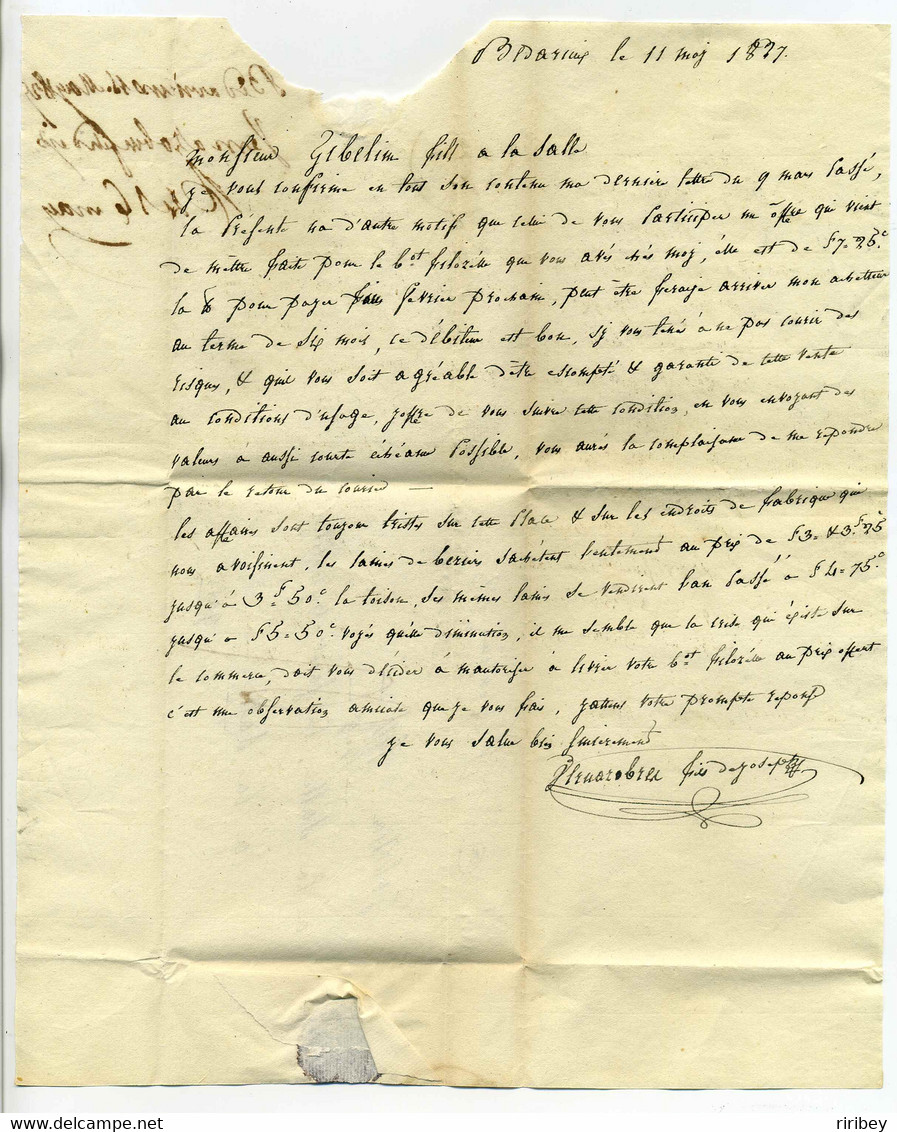 Bedarieux le 11 may 1837.
Monsieur Gibelin fils a la Salle
Je vous confirme en tout son contenu ma derniere lettre du 9 mars passé,
la presente na d'autre motif que celui de vous participer une offre qui vient
de mêttre faite pour le b.ot filozelle que vous avés chés moy, élle est de f 7=25.c
la pour payer fin fevrier prochain, peut être feraije arriver mon achetteur
au terme de six mois, ce débiteur est bon, sy vous tené à ne pas courir des
risques, & quil vous soit agréable dêtre escompté & garanti de cette vente
au conditions d'usage, joffre de vous suivre cette condition, en vous envoyant des
valeurs à aussi courte échéance possible, vous aurés la complaisance de me repondre
par le retour du courier —
les affaires sont toujour tristes sur cette place & sur les endroits de fabrique qui
nous avoisinent, les laines de beziers sachétent lentement au prix de f 3= & 3=f 25
jusqu'à 3=f 50c. la toison, des mêmes laines se vendirent l'an passé a f 4=75.c
jusqu'a f 5=50c. voyés quelle diminution, il me semble que la crise qui éxiste sur
le commerce, doit vous décider à mautoriser à livrer votre b.ot filozelle au prix offert
c'est une observation amicale que je vous fais, jattens votre prompte reponse
je vous salue bien sincerement
fils de joseph
16 may
riribey